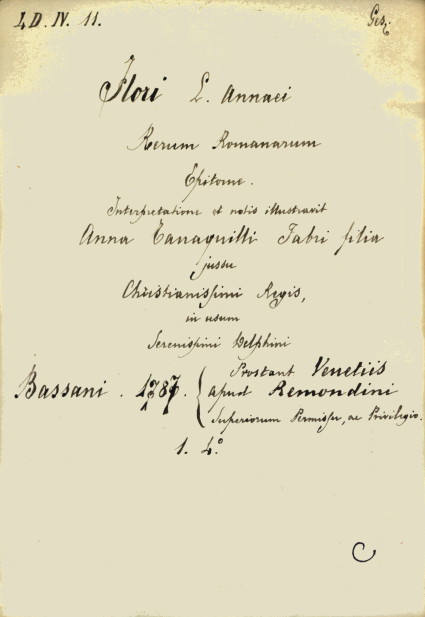 4 D. IV. 11. Ges.
Flori L. Annaei
Rerum Romanarum
Epitome.
Interpretatione et notis illustravit
Anna Tanaquilli Fabri filia
jussu
Christianissimi Regis,
in usum
Serenissimi Delphini
Prostant Venetiis
Bassani. 1787. apud Remondini
Superiorum Permissu, ac Privilegio.
1. 4.º
C